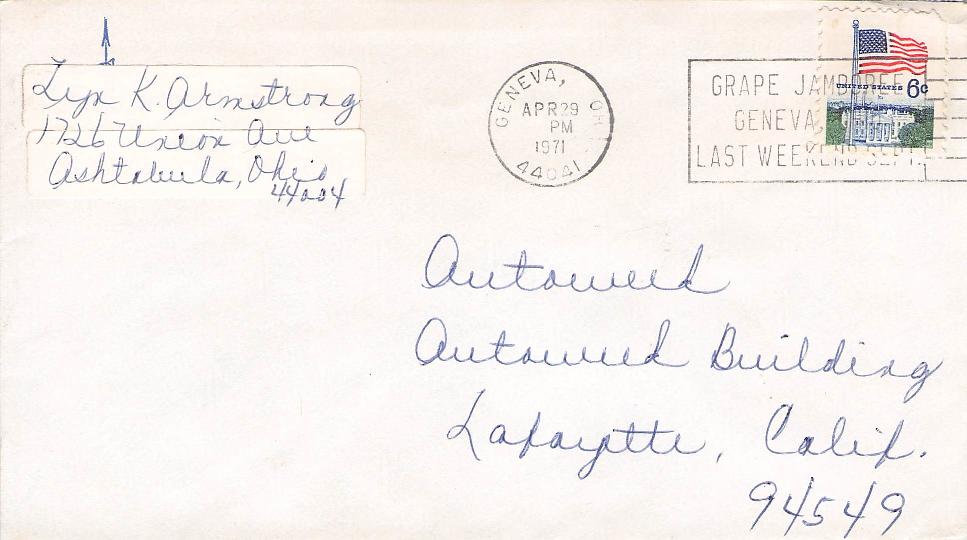 Lyn K. Armstrong
1726 Union Ave
Ashtabula, Ohio
44004
GENEVA, OH
APR 29
PM
1971
44041
GRAPE JAMBOREE
GENEVA,
LAST WEEKEND SEPT.
UNITED STATES 6c
Autoweek
Autoweek Building
Lafayette, Calif.
94549